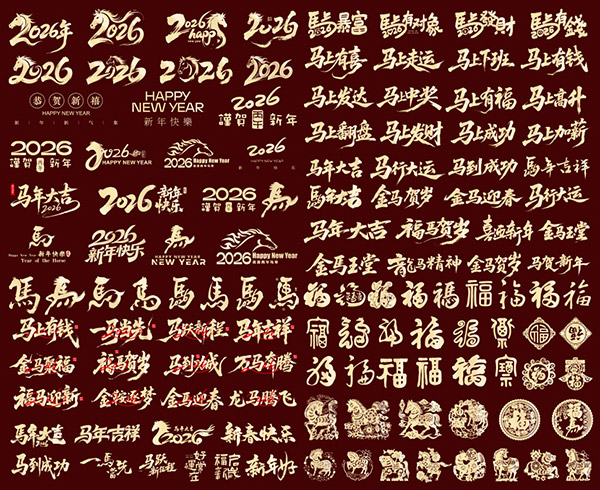 2026年 2026 2026 happy 2026
2026 2026 2026 2026
恭贺新禧
HAPPY NEW YEAR
HAPPY
NEW YEAR
新年快樂
2026
謹賀 新年
2026
謹賀 新年
2026
HAPPY NEW YEAR
2026 Happy New Year
2026
马年大吉
2026
2026 新年快乐
2026
謹賀 新年
馬
馬
Happy New Year 新年快樂
Year of the Horse
2026
新年快乐
馬
HAPPY
NEW YEAR
2026 Happy New Year
馬 馬 馬 馬 馬 馬 馬
马上有钱 一马当先 马跃新程 马年吉祥
金马聚福 福马贺岁 马到功成 万马奔腾
福马迎新 金鞍逐梦 金马迎春 龙马腾飞
马年大吉 马年吉祥 2026 新春快乐
马到成功 一马当先 马跃新征程 好运当头 新年好
馬上暴富 馬上有对象 馬上發財 馬上有錢
马上有喜 马上走运 马上下班 马上有钱
马上发达 马上中奖 马上有福 马上高升
马上翻盘 马上发财 马上成功 马上加薪
马年大吉 马行大运 马到成功 馬年吉祥
馬年大吉 金马贺岁 金马迎春 马行大运
马年大吉 福马贺岁 喜迎新年 金马玉堂
金马玉堂 龙马精神 金马贺岁 马贺新年
福 福 福 福 福 福 福 福 福
福 福 福 福 福
福 福 福 福 福